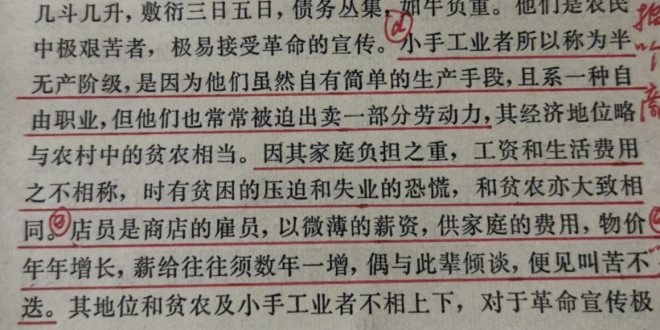 几斗几升，敷衍三日五日，债务丛集，如牛负重。他们是农民
中极艰苦者，极易接受革命的宣传。小手工业者所以称为半
无产阶级，是因为他们虽然自有简单的生产手段，且系一种自
由职业，但他们也常常被迫出卖一部分劳动力，其经济地位略
与农村中的贫农相当。因其家庭负担之重，工资和生活费用
之不相称，时有贫困的压迫和失业的恐慌，和贫农亦大致相
同。店员是商店的雇员，以微薄的薪资，供家庭的费用，物价
年年增长，薪给往往须数年一增，偶与此辈倾谈，便见叫苦不
迭。其地位和贫农及小手工业者不相上下，对于革命宣传极